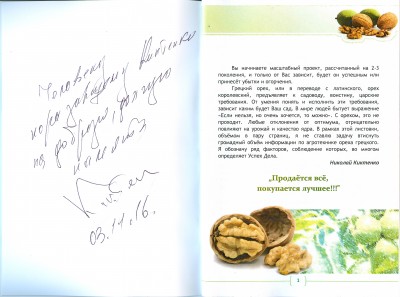 Человеку
на добрую долгую
память
03.11.16.
Вы начинаете масштабный проект, рассчитанный на 2-3
поколения, и только от Вас зависит, будет он успешным или
принесёт убытки и огорчения.
Грецкий орех, или в переводе с латинского, орех
королевский, предъявляет к садоводу, воистину, царские
требования. От умения понять и исполнить эти требования,
зависит каким будет Ваш сад. В мире людей бытует выражение
«Если нельзя, но очень хочется, то можно». С орехом, это не
проходит. Любые отклонения от оптимума, отрицательно
повлияют на урожай и качество ядра. В рамках этой листовки,
объёмом в пару страниц, я не ставлю задачу втиснуть
громадный объём информации по агротехнике ореха грецкого.
Я обозначу ряд факторов, соблюдение которых, во многом
определяет Успех Дела.
Николай Кипенко
„Продаётся всё,
покупается лучшее!!!"
1